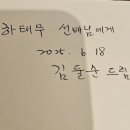 하태무 선배님에게
2025. 6. 18
김돌순 드림